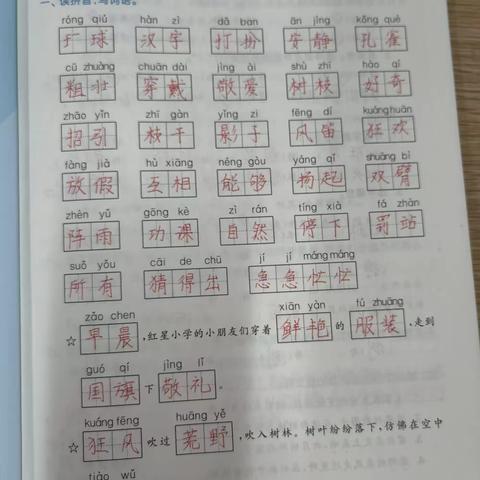 一、读拼音,写词语。
róng qiú hàn zì dǎ ban ān jìng kǒng què
绒球 汉字 打扮 安静 孔雀
cū zhuàng chuān dài jìng ài shù zhī hào qí
粗壮 穿戴 敬爱 树枝 好奇
zhāo yǐn zhī gàn yǐng zi fēng dí kuáng huān
招引 枝干 影子 风笛 狂欢
fàng jià hù xiāng néng gòu yáng qǐ shuāng bì
放假 互相 能够 扬起 双臂
zhèn yǔ gōng kè zì rán tíng xià fá zhàn
阵雨 功课 自然 停下 罚站
suǒ yǒu cāi de chū jí jí máng máng
所有 猜得出 急急忙忙
zǎo chen xiān yàn fú zhuāng
☆早晨,红星小学的小朋友们穿着鲜艳的服装,走到
guó qí jìng lǐ
国旗下敬礼。
kuáng fēng huāng yě
☆狂风吹过荒野,吹入树林。树叶纷纷落下,仿佛在空中
tiào wǔ